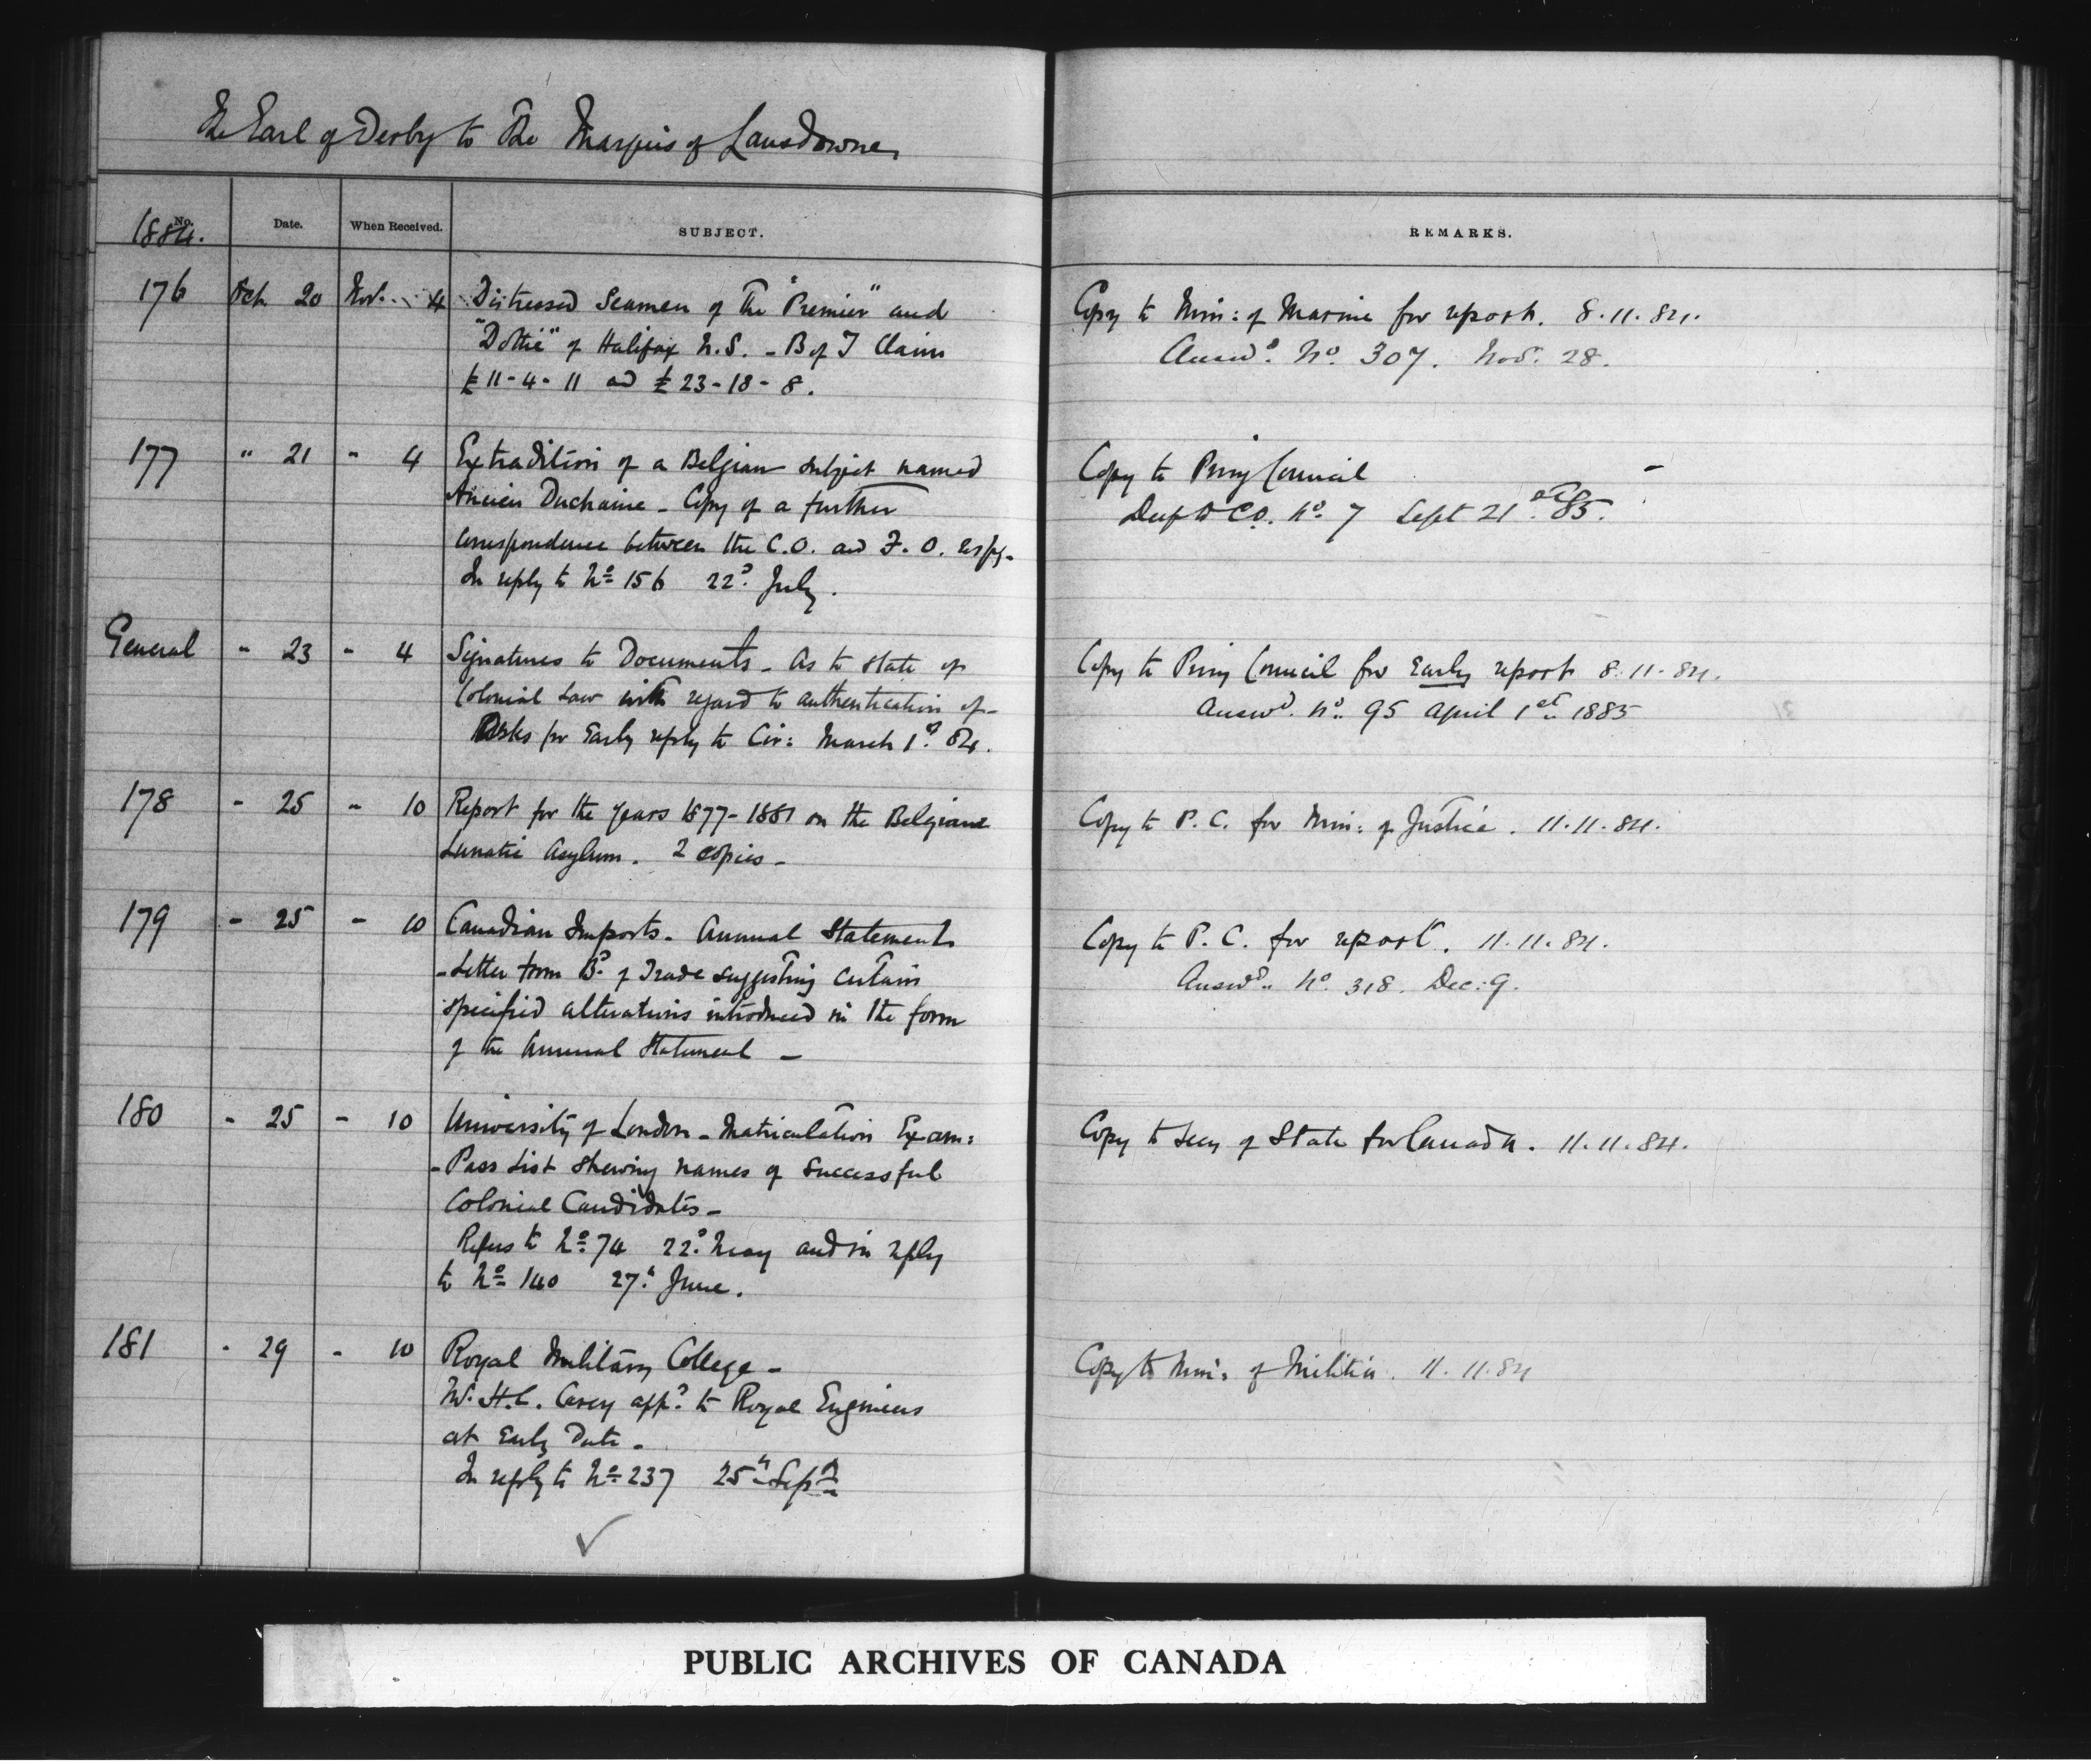 The Earl of Derby to The Marquis of Lansdowne
No. Date. When Received. SUBJECT. REMARKS.
1884.
176 Oct. 20 Nov. 4 Distressed Seamen of The "Premier" and
"Dottie" of Halifax N.S. - B of T Claim
£11-4-11 and £23-18-8.
Copy to Min: of Marine for report. 8.11.84.
Answd. No. 307. Nov. 28.
177 " 21 - 4 Extradition of a Belgian subject named
Duchaine - Copy of a further
Correspondence between the C.O. and F.O. respg.
In reply to No. 156 22d. July.
Copy to Privy Council -
Desp to C.O. No. 7 Sept 21st. 85.
General - 23 - 4 Signatures to Documents - As to state of
Colonial Law with regard to authentication of -
Asks for Early reply to Cir: March 1st. 84.
Copy to Privy Council for Early report 8.11.84.
Answd. No. 95 April 1st 1885
178 - 25 - 10 Report for the years 1877-1881 on the Belgian
Lunatic Asylum. 2 copies -
Copy to P.C. for Min: of Justice. 11.11.84.
179 - 25 - 10 Canadian Imports. Annual Statement
- Letter from Bd. of Trade suggesting certain
specified alterations introduced in the form
of the Annual Statement -
Copy to P.C. for report. 11.11.84.
Answd. No. 318. Dec. 9.
180 - 25 - 10 University of London - Matriculation Exam:
- Pass List shewing names of successful
Colonial Candidates -
Refers to No. 74 22d. May and in reply
to No. 140 27th. June.
Copy to Secy of State for Canada. 11.11.84.
181 - 29 - 10 Royal Military College -
H.C. Carey appd. to Royal Engineers
at Early Date -
In reply to No. 237 25th Sepr
Copy to Min: of Militia. 11.11.84
PUBLIC ARCHIVES OF CANADA